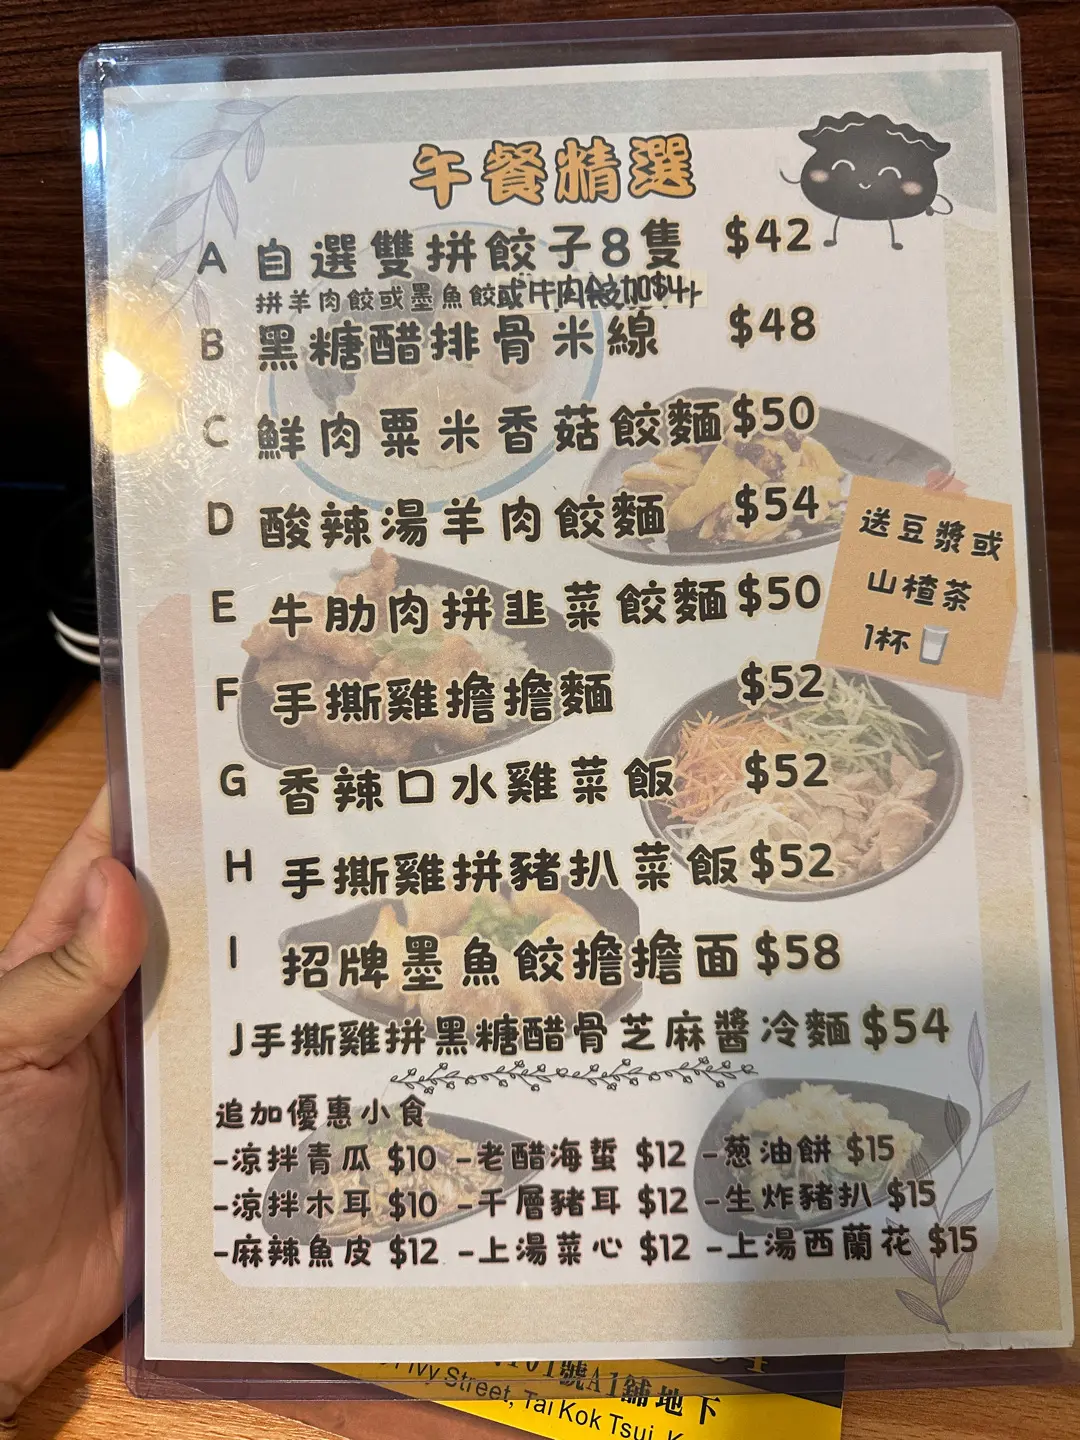 午餐精選
A 自選雙拼餃子8隻 $42
拼羊肉餃或墨魚餃或牛肉餃加$4
B 黑糖醋排骨米線 $48
C 鮮肉粟米香菇餃麵 $50
D 酸辣湯羊肉餃麵 $54
E 牛肋肉拼韭菜餃麵 $50
F 手撕雞擔擔麵 $52
G 香辣口水雞菜飯 $52
H 手撕雞拼豬扒菜飯 $52
I 招牌墨魚餃擔擔面 $58
J 手撕雞拼黑糖醋骨芝麻醬冷麵 $54
送豆漿或
山楂茶
1杯
追加優惠小食
-涼拌青瓜 $10 -老醋海蜇 $12 -葱油餅 $15
-涼拌木耳 $10 -千層豬耳 $12 -生炸豬扒 $15
-麻辣魚皮 $12 -上湯菜心 $12 -上湯西蘭花 $15
101號A1舖地下
Ivy Street, Tai Kok Tsui,